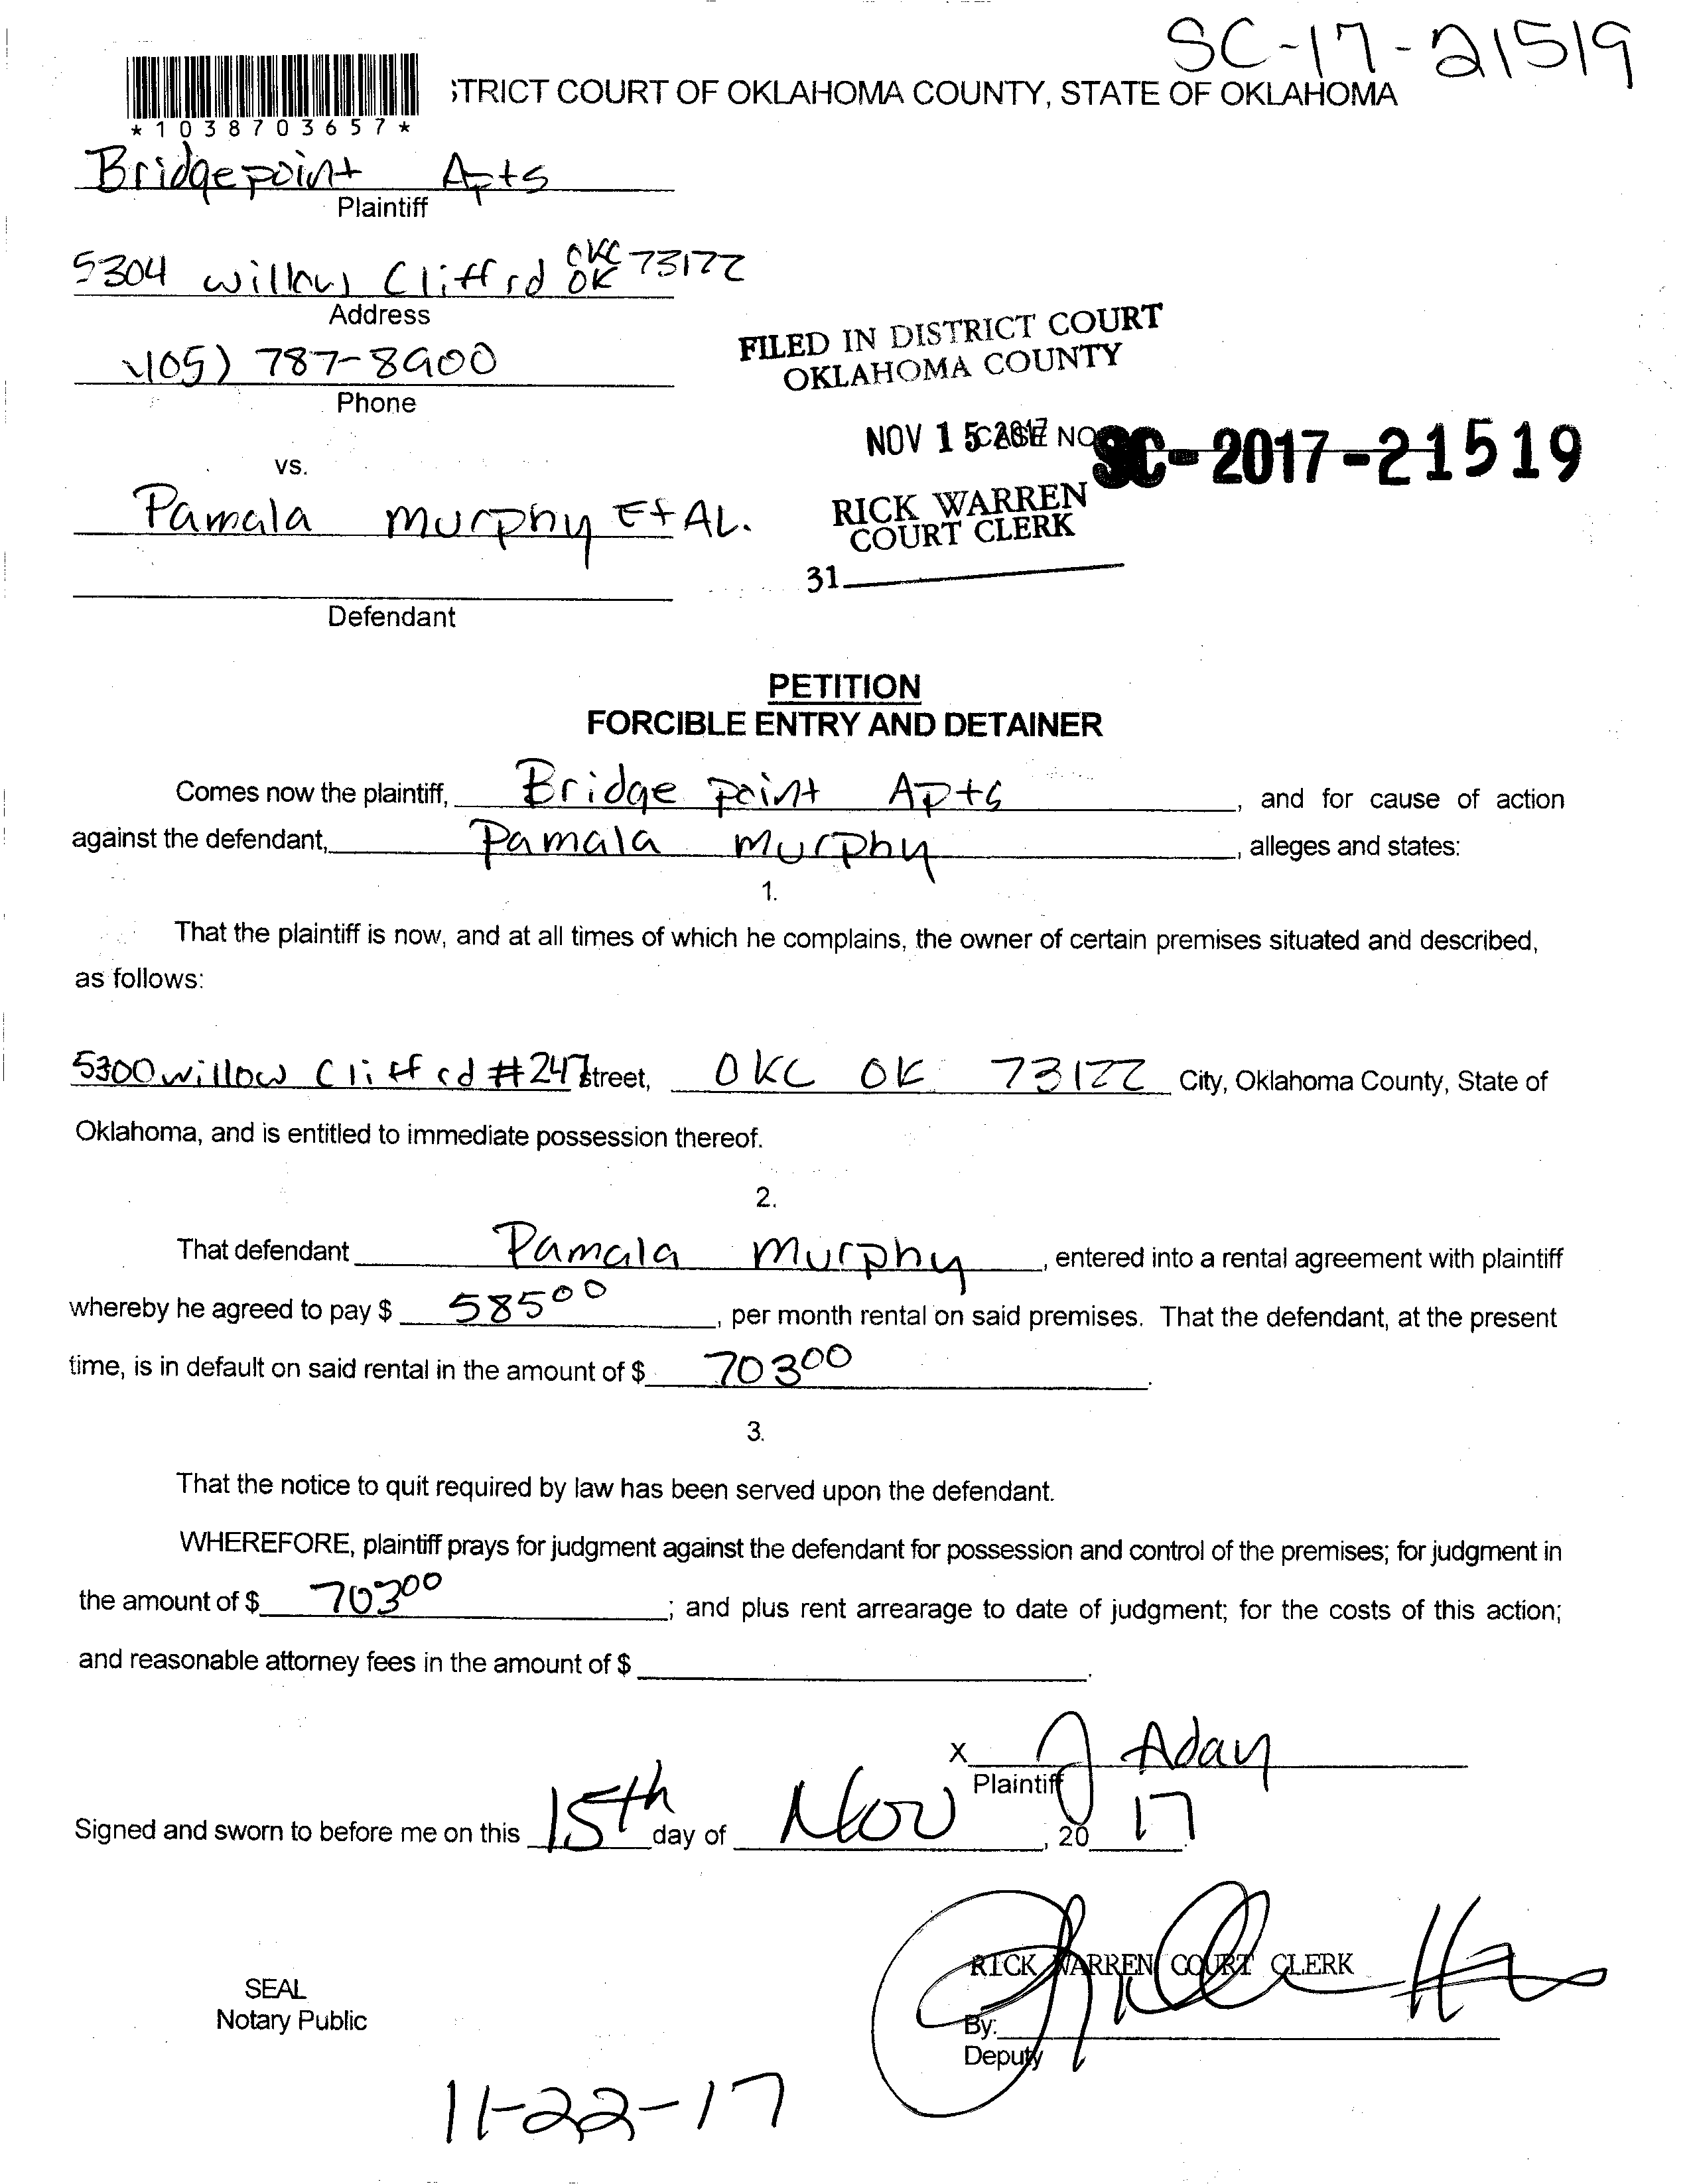 SC-17-21519
TRICT COURT OF OKLAHOMA COUNTY, STATE OF OKLAHOMA
*1038703657*
Bridgepoint Apts
Plaintiff
5304 willow Cliff rd OKC OK 73122
Address
405) 787-8900
Phone
FILED IN DISTRICT COURT
OKLAHOMA COUNTY
NOV 15 2017 CASE NO SC-2017-21519
vs.
RICK WARREN
COURT CLERK
Pamala Murphy Et AL.
31
Defendant
PETITION
FORCIBLE ENTRY AND DETAINER
Comes now the plaintiff, Bridge point Apts, and for cause of action
against the defendant, Pamala Murphy, alleges and states:
1.
That the plaintiff is now, and at all times of which he complains, the owner of certain premises situated and described,
as follows:
5300 willow Cliff rd #247 street, OKC OK 73122 City, Oklahoma County, State of
Oklahoma, and is entitled to immediate possession thereof.
2.
That defendant Pamala Murphy, entered into a rental agreement with plaintiff
whereby he agreed to pay $ 585 00, per month rental on said premises. That the defendant, at the present
time, is in default on said rental in the amount of $ 703 00.
3.
That the notice to quit required by law has been served upon the defendant.
WHEREFORE, plaintiff prays for judgment against the defendant for possession and control of the premises; for judgment in
the amount of $ 703 00; and plus rent arrearage to date of judgment; for the costs of this action;
and reasonable attorney fees in the amount of $ .
x J Aday
Plaintiff
Signed and sworn to before me on this 15th day of Nov, 20 17.
RICK WARREN COURT CLERK
SEAL
Notary Public
By:
Deputy
11-22-17